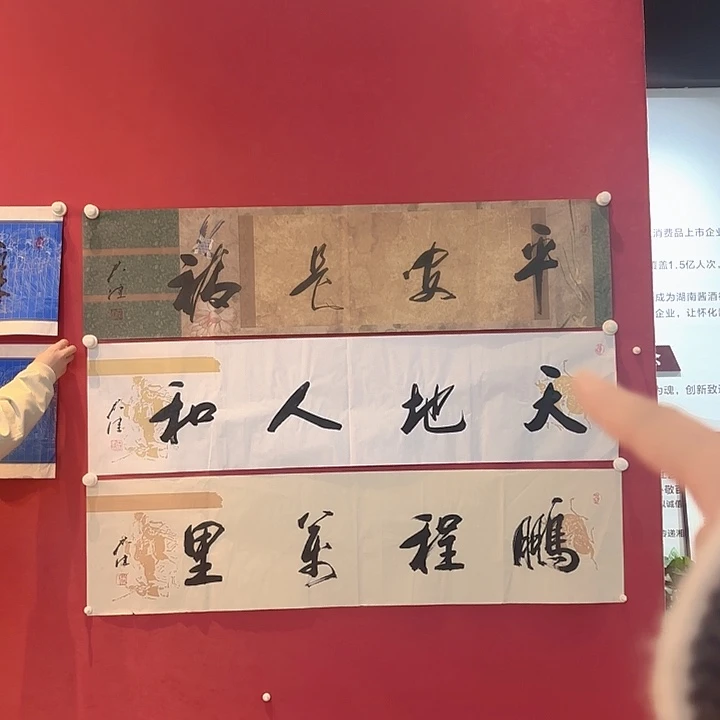 平安长福
天地人和
鵬程萬里
消费品上市企业
覆盖1.5亿人次、
成为湖南酱酒
企业，让怀化
为魂，创新致